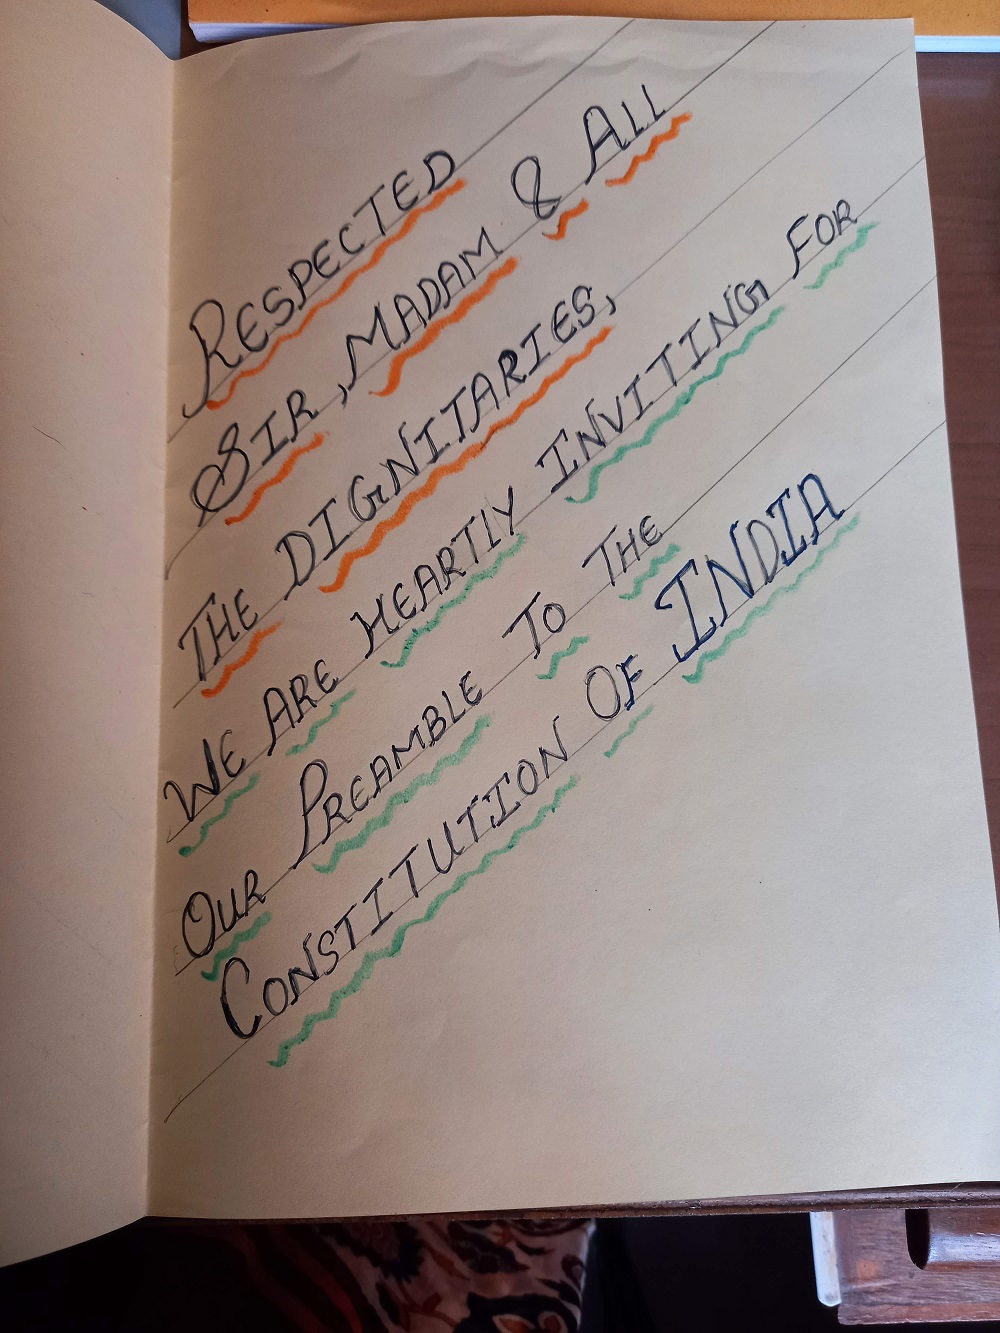 RESPECTED
SIR, MADAM & ALL
THE DIGNITARIES,
WE ARE HEARTIY INVITING FOR
OUR PREAMBLE TO THE
CONSTITUTION OF INDIA